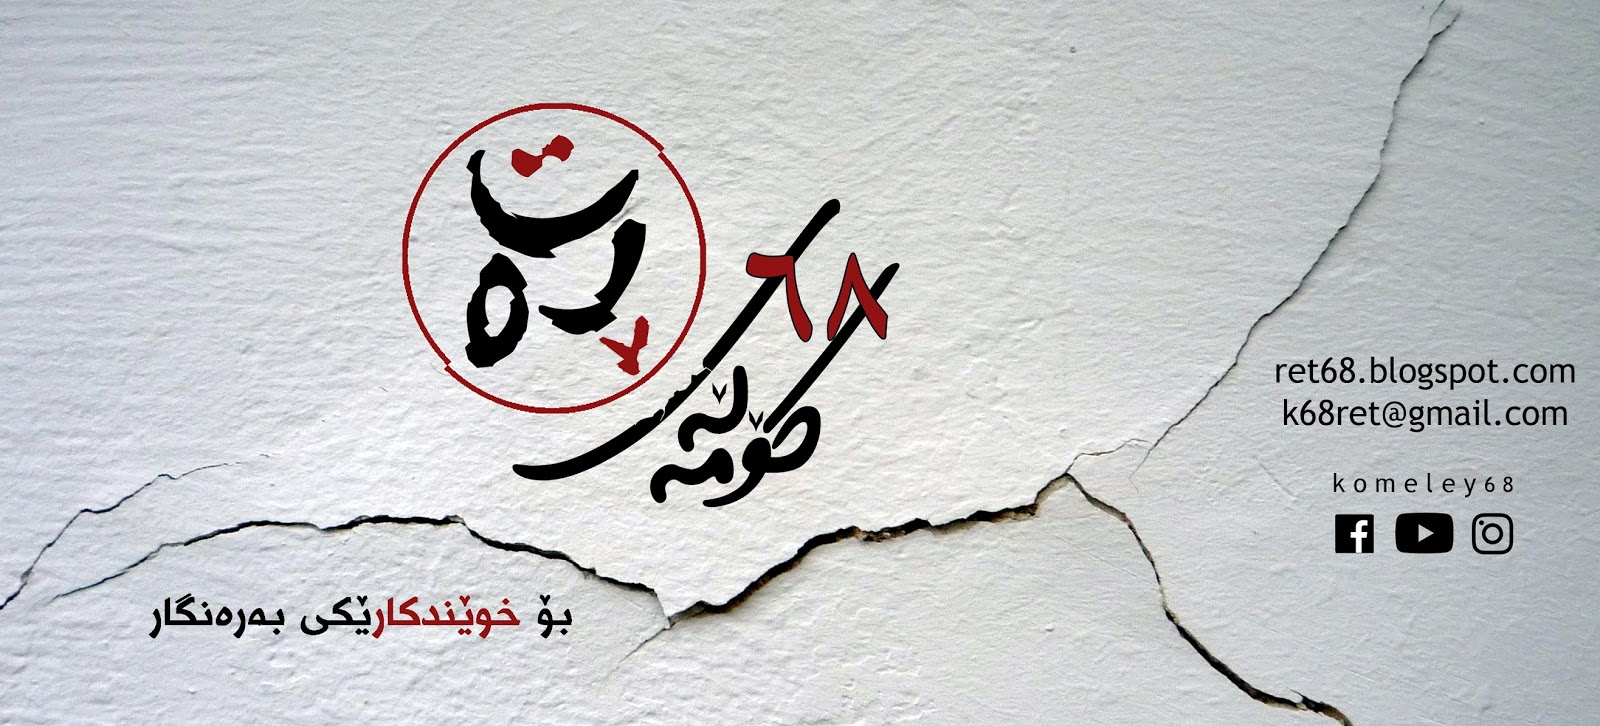 ڕەت
کۆمەڵەی ٦٨
بۆ خوێندکارێکی بەرەنگار
ret68.blogspot.com
k68ret@gmail.com
komeley68